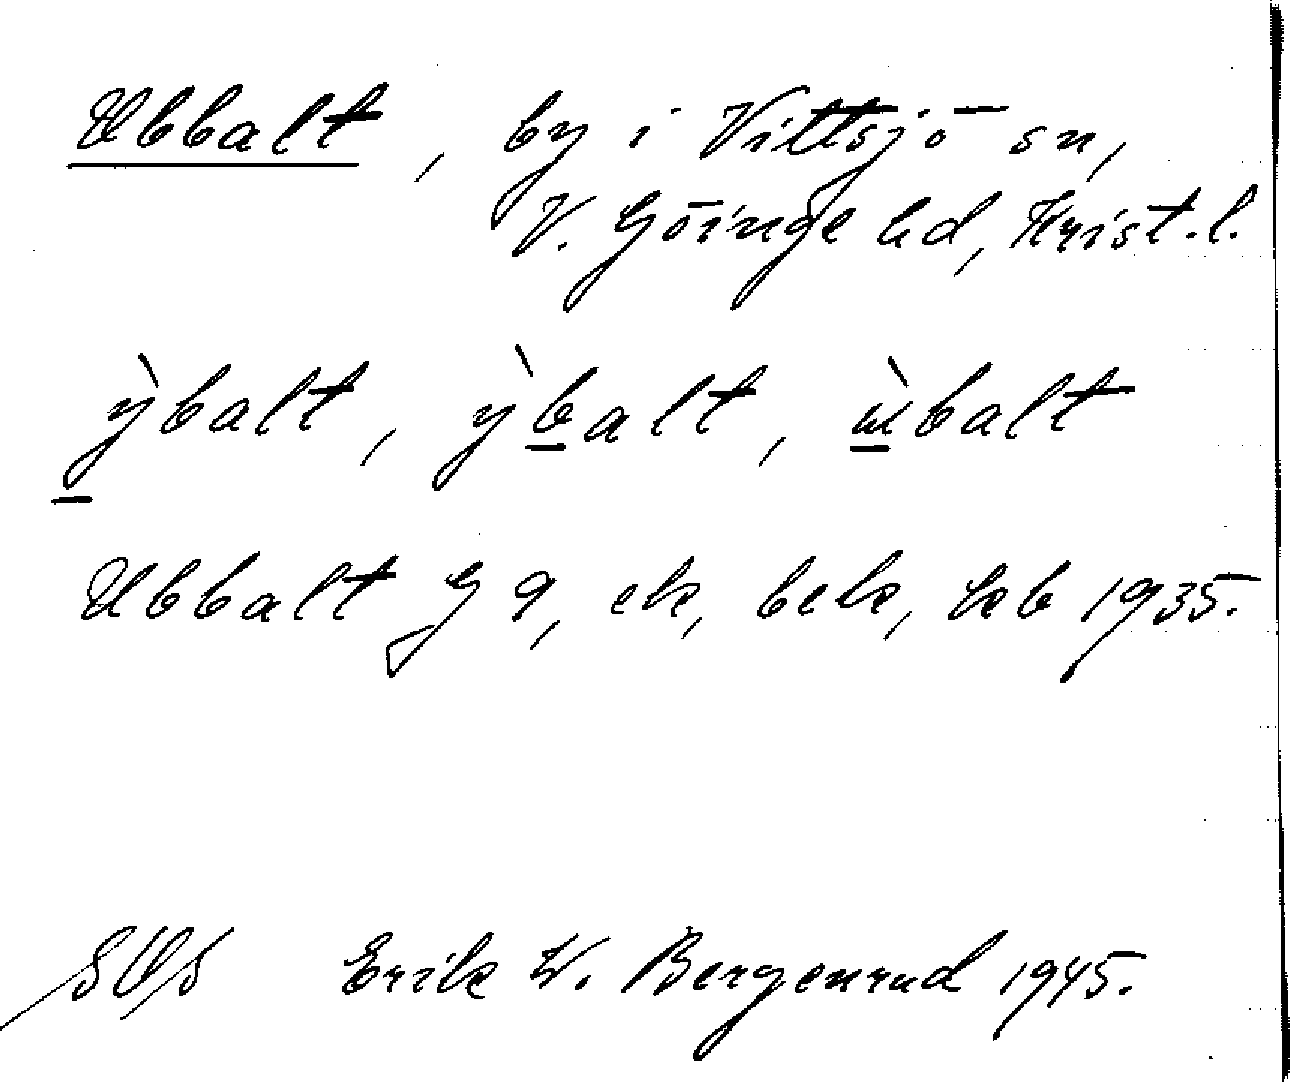 Ubbalt, by i Vittsjö sn,
V. Göinge hd, Krist.l.
ỳ̲balt, ỳb̲alt, ɯ̲̀balt
Ubbalt G 9, ek, bek, kb 1935.
Erik W. Bergenrud 1945.